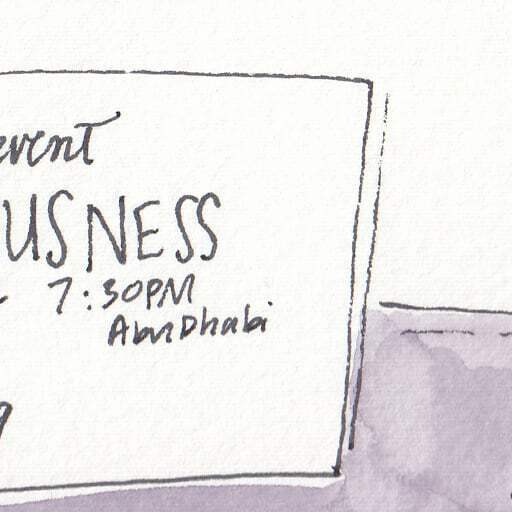 event
USNESS
7:30PM
AbuDhabi